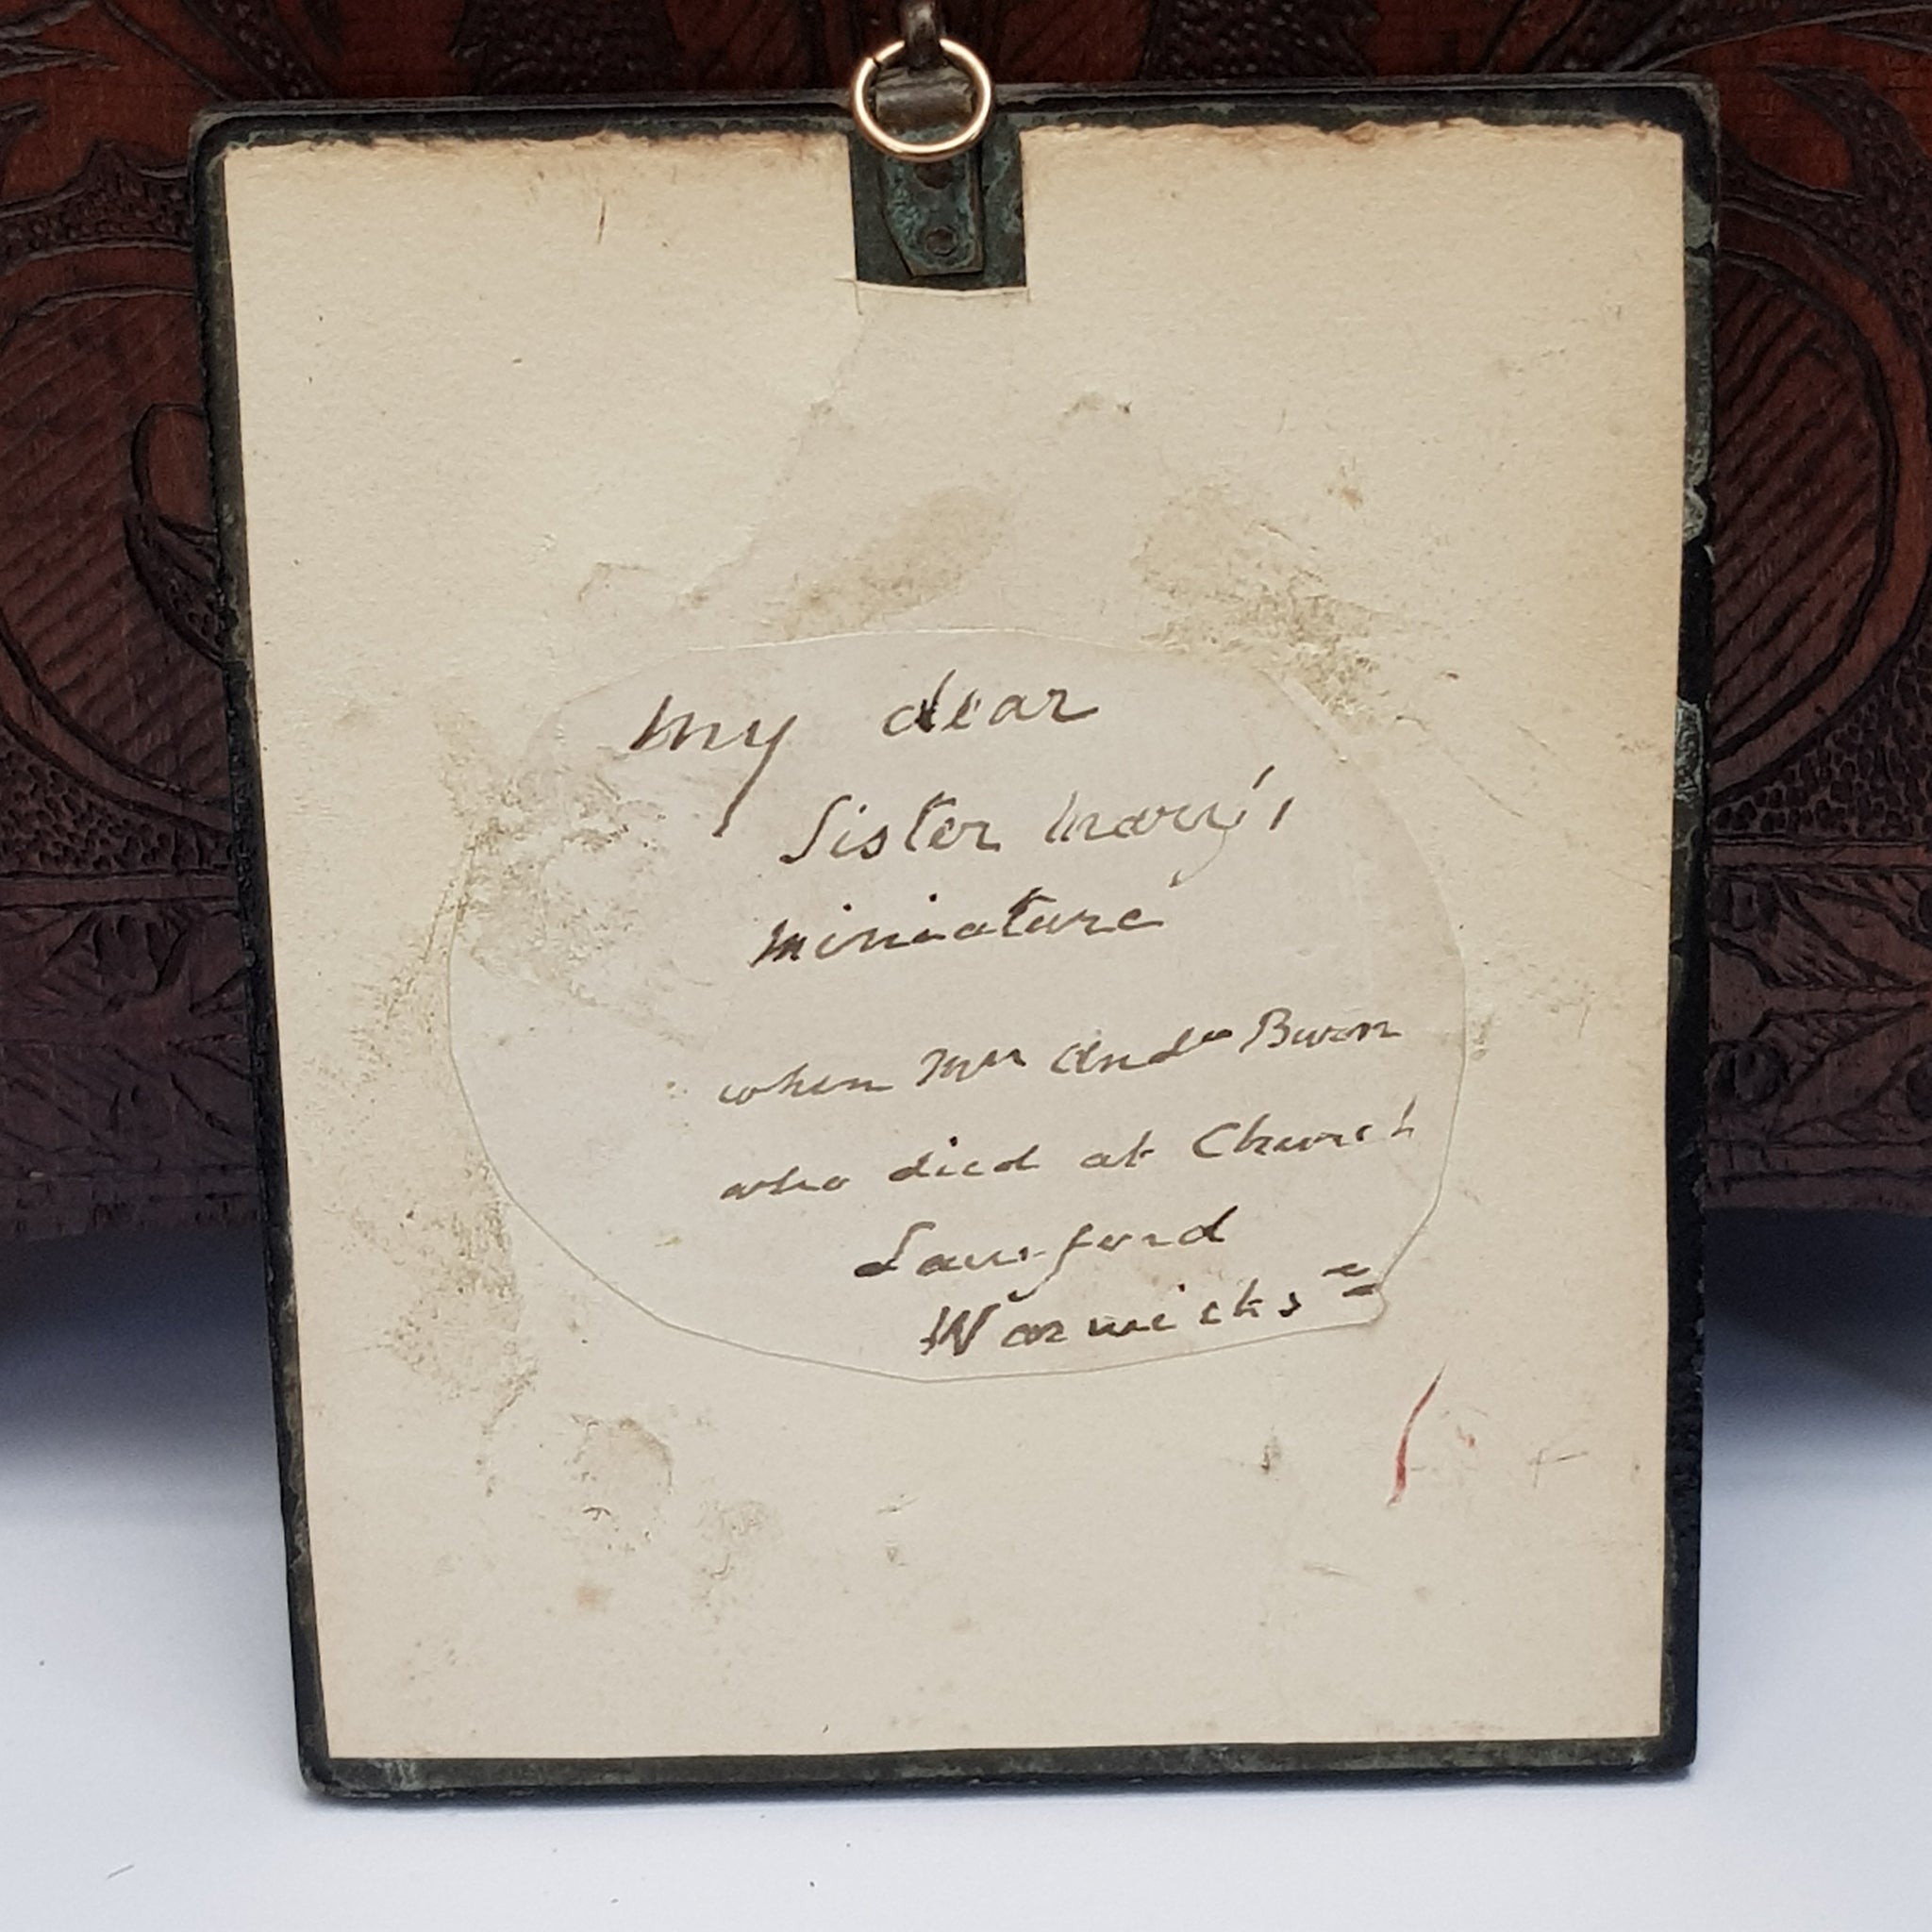 My dear
Sister Mary's
miniature
when Mrs Andw Buon
who died at Church
Lawford
Warwicks